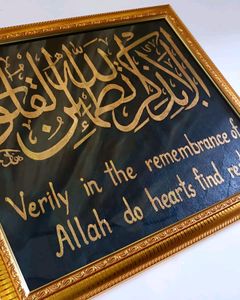 ألا بذكر الله تطمئن القلو
Verily in the remembrance of
Allah do hearts find re